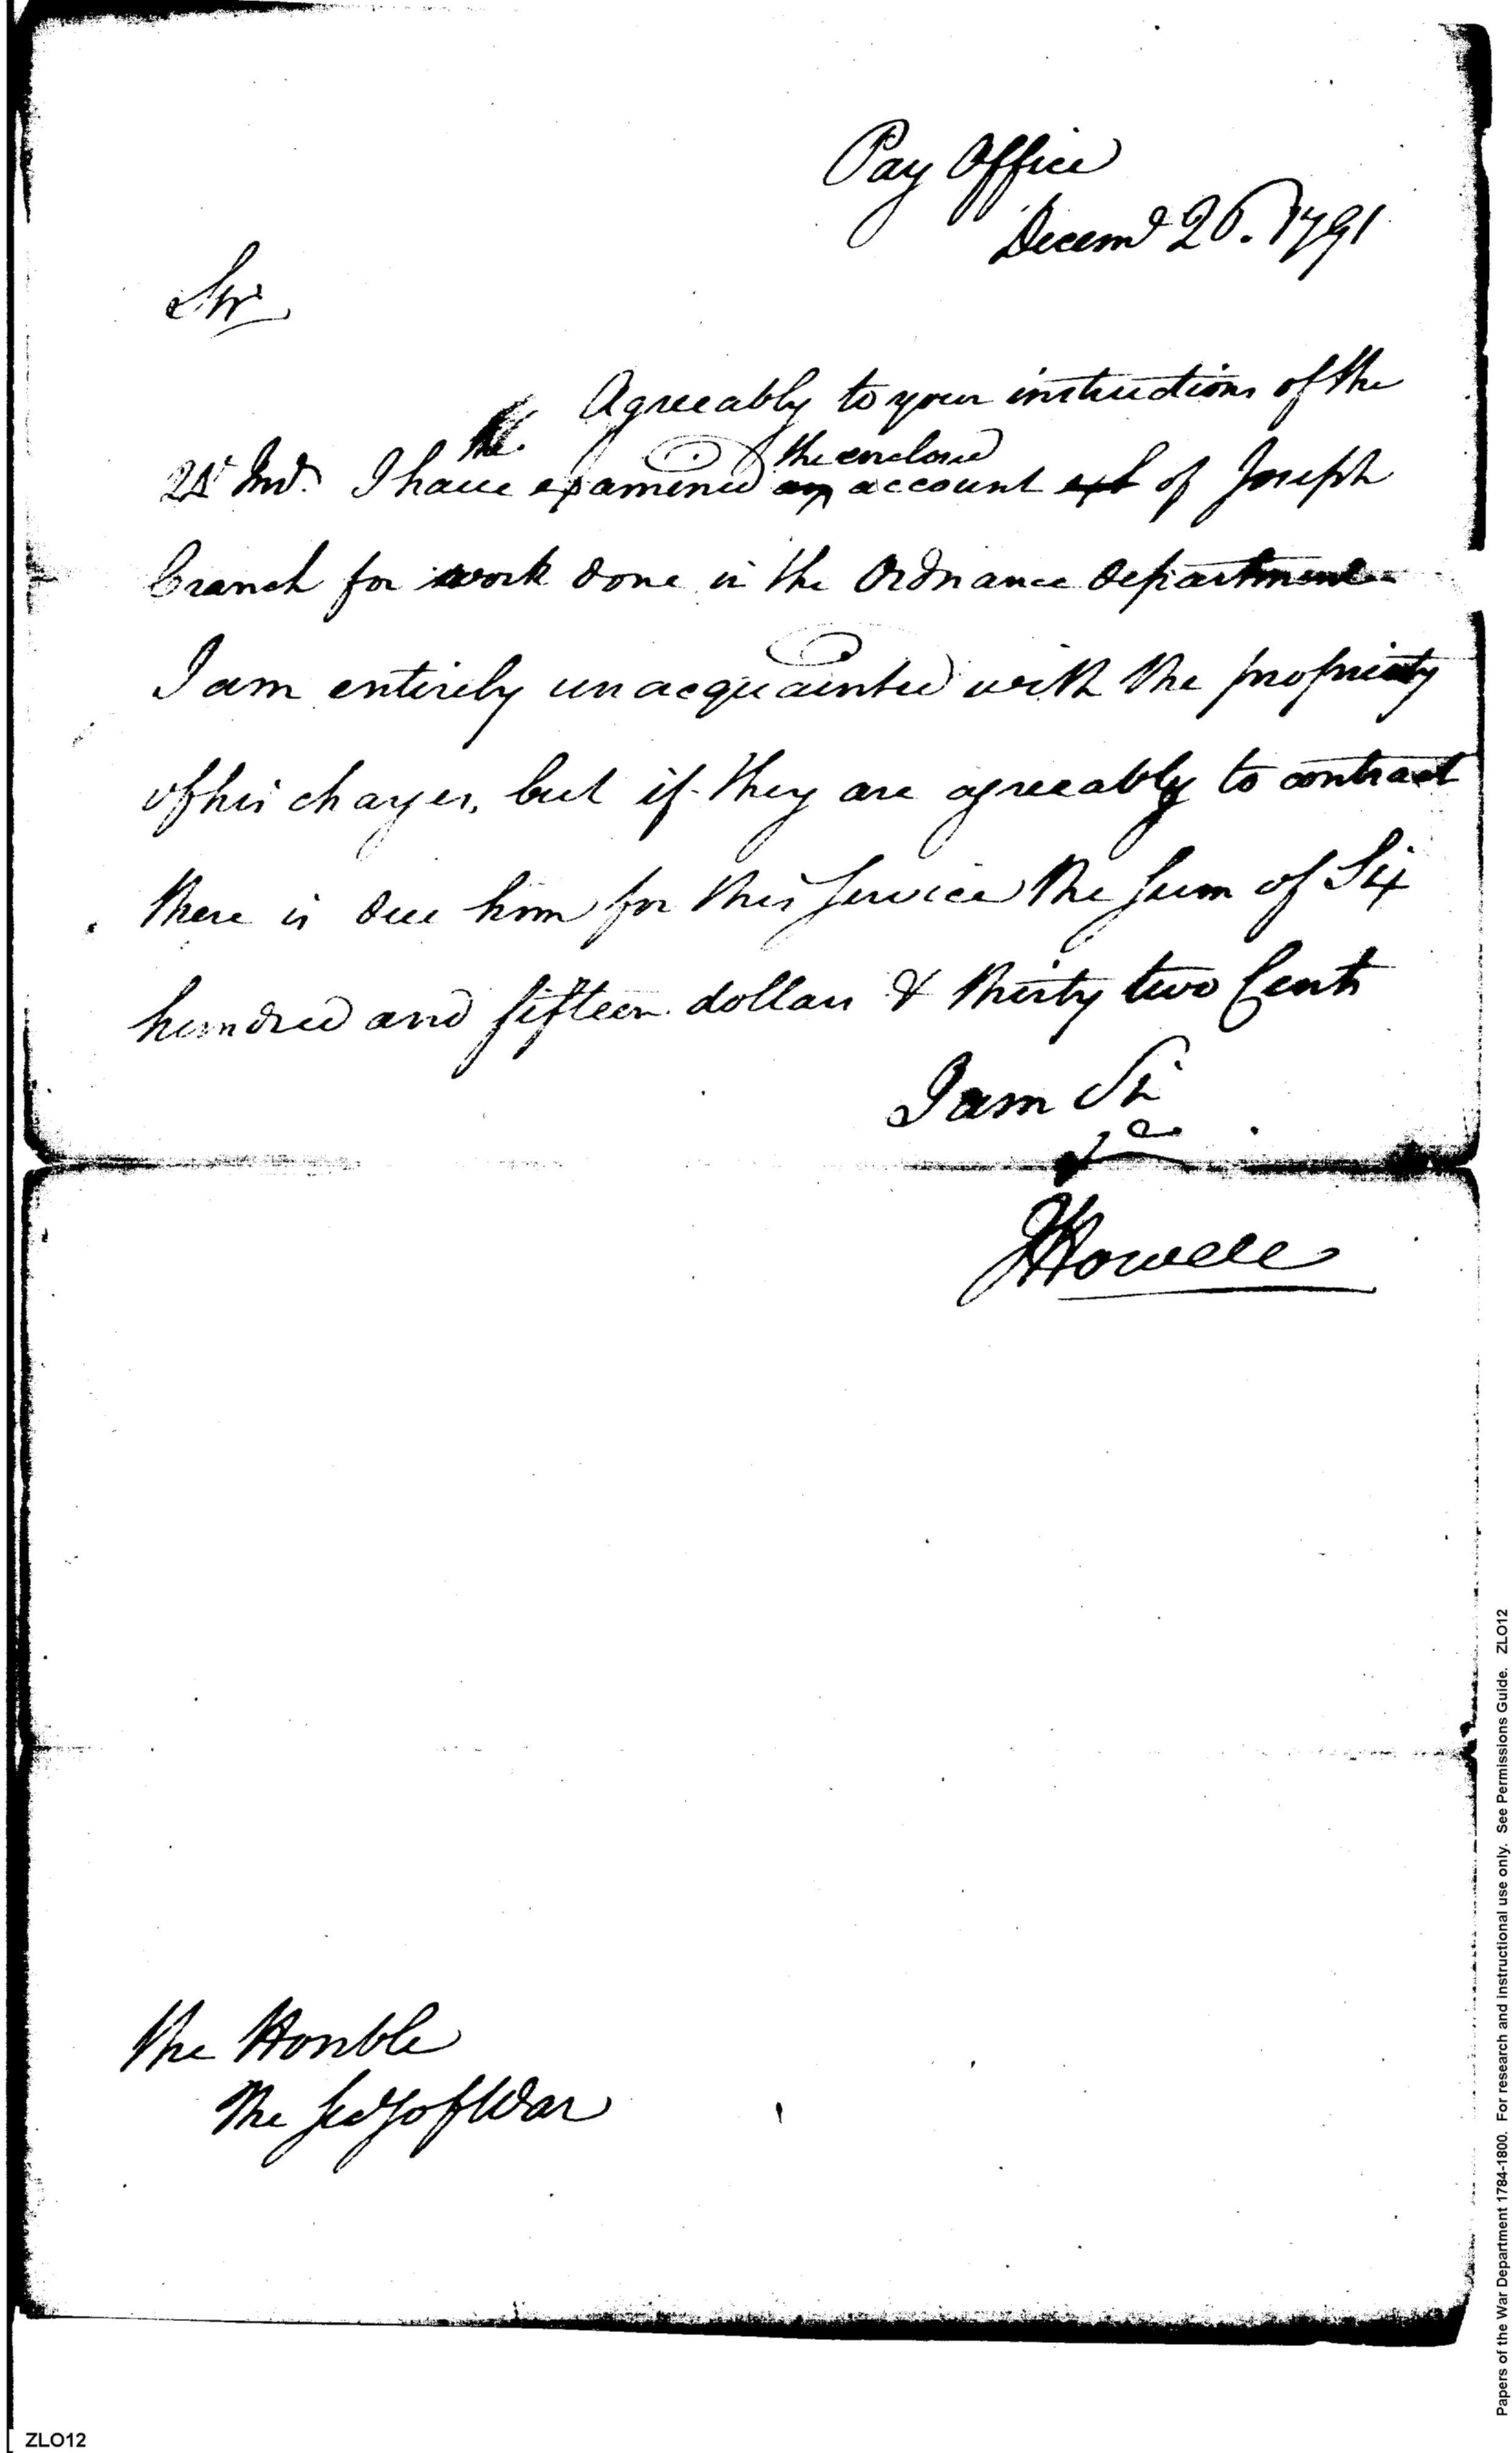 Pay Office
Decemr 26. 1791
Sir
Agreeably to your instructions of the
the enclosed
21st Inst. I have examined an account of Joseph
Cranch for work done in the Ordnance department
I am entirely unacquainted with the propriety
of his charges, but if they are agreeably to contract
there is due him for this service the sum of Six
hundred and fifteen dollars & thirty two Cents
I am Sir
JHowell
The Honble
The Secy of War
ZLO12
Papers of the War Department 1784-1800. For research and instructional use only. See Permissions Guide. ZLO12